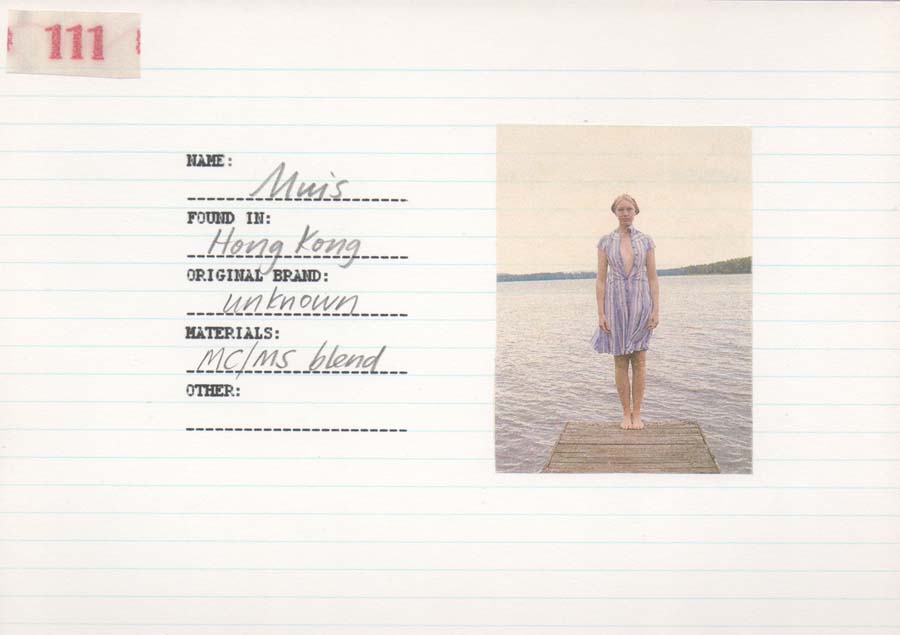 111
NAME:
Muis
FOUND IN:
Hong Kong
ORIGINAL BRAND:
unknown
MATERIALS:
MC/MS blend
OTHER: